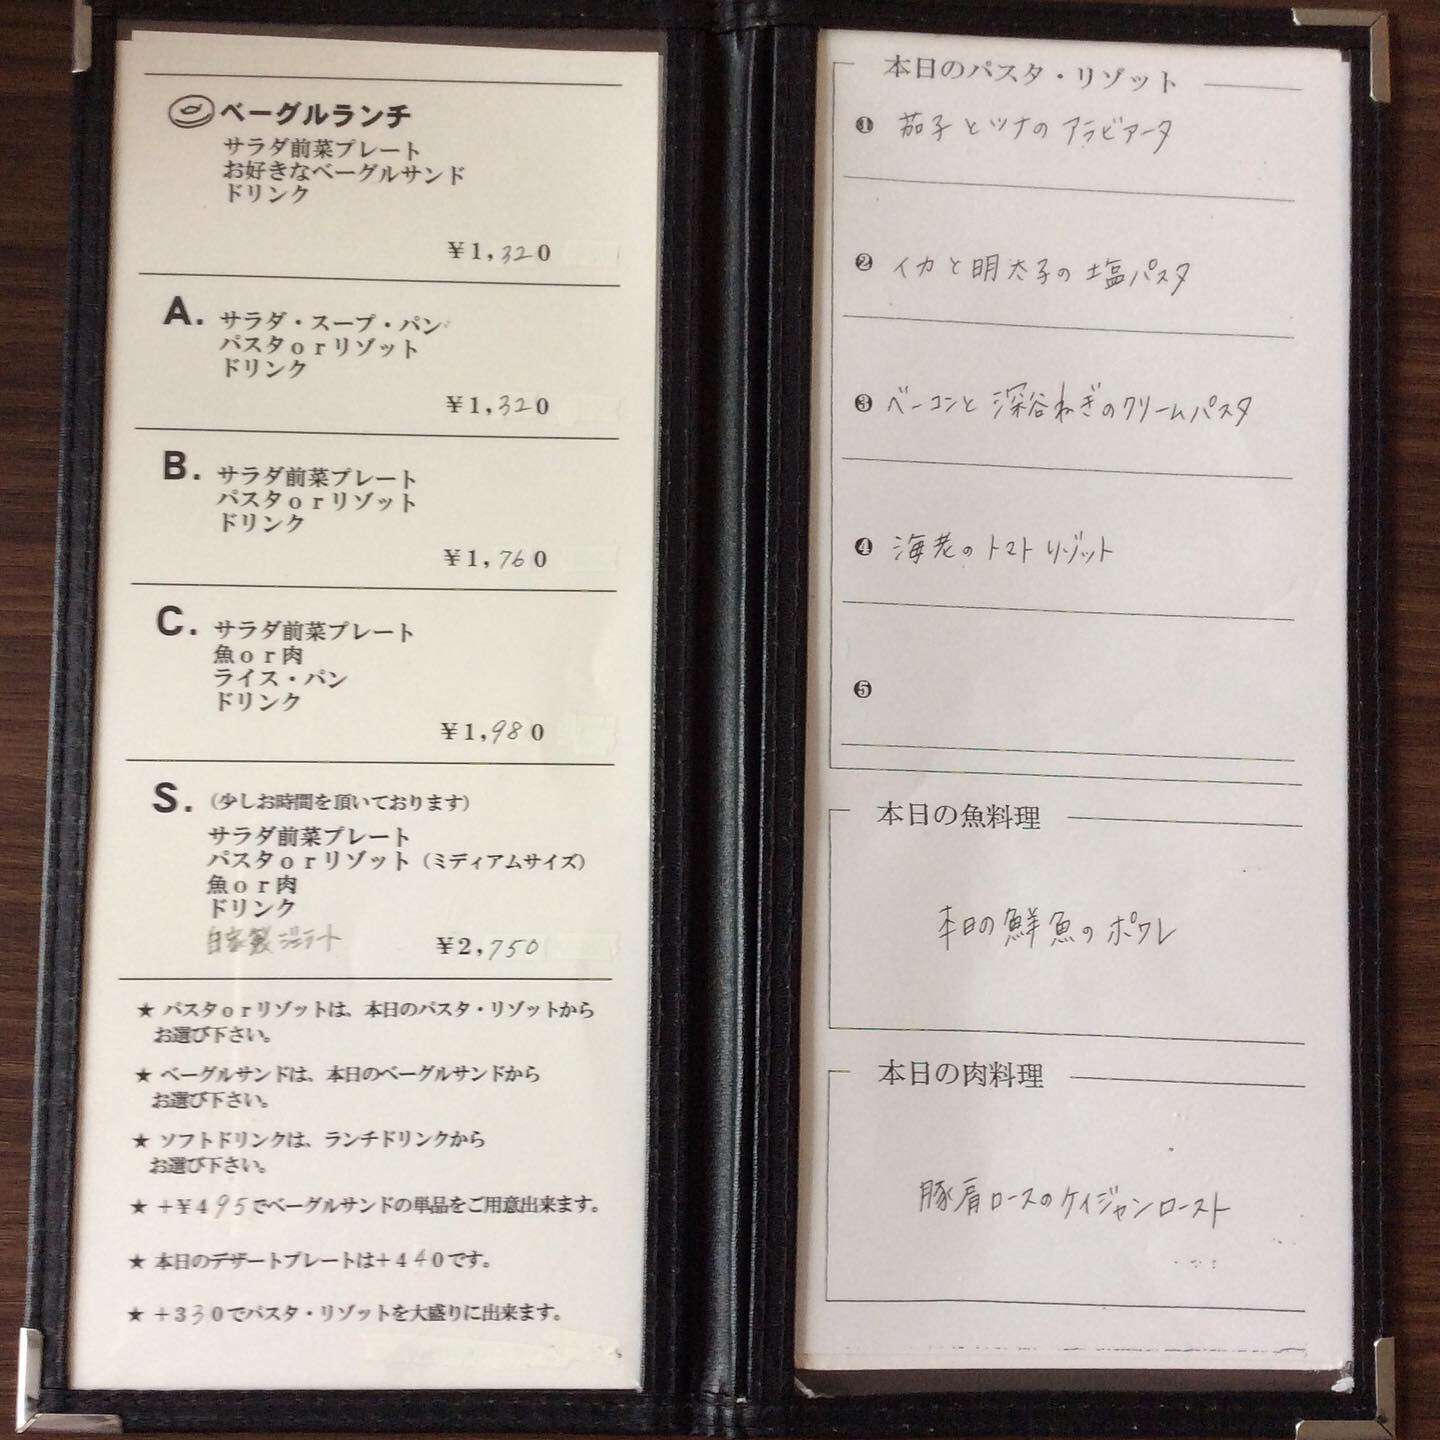 ベーグルランチ
サラダ前菜プレート
お好きなベーグルサンド
ドリンク
¥1,320
A. サラダ・スープ・パン
パスタorリゾット
ドリンク
¥1,320
B. サラダ前菜プレート
パスタorリゾット
ドリンク
¥1,760
C. サラダ前菜プレート
魚or肉
ライス・パン
ドリンク
¥1,980
S. (少しお時間を頂いております)
サラダ前菜プレート
パスタorリゾット(ミディアムサイズ)
魚or肉
ドリンク
自家製ジェラート ¥2,750
★ パスタorリゾットは、本日のパスタ・リゾットから
お選び下さい。
★ ベーグルサンドは、本日のベーグルサンドから
お選び下さい。
★ ソフトドリンクは、ランチドリンクから
お選び下さい。
★ +¥495でベーグルサンドの単品をご用意出来ます。
★ 本日のデザートプレートは+440です。
★ +330でパスタ・リゾットを大盛りに出来ます。
本日のパスタ・リゾット
❶ 茄子とツナのアラビアータ
❷ イカと明太子の塩パスタ
❸ ベーコンと深谷ねぎのクリームパスタ
❹ 海老のトマトリゾット
❺
本日の魚料理
本日の鮮魚のポワレ
本日の肉料理
豚肩ロースのケイジャンロースト